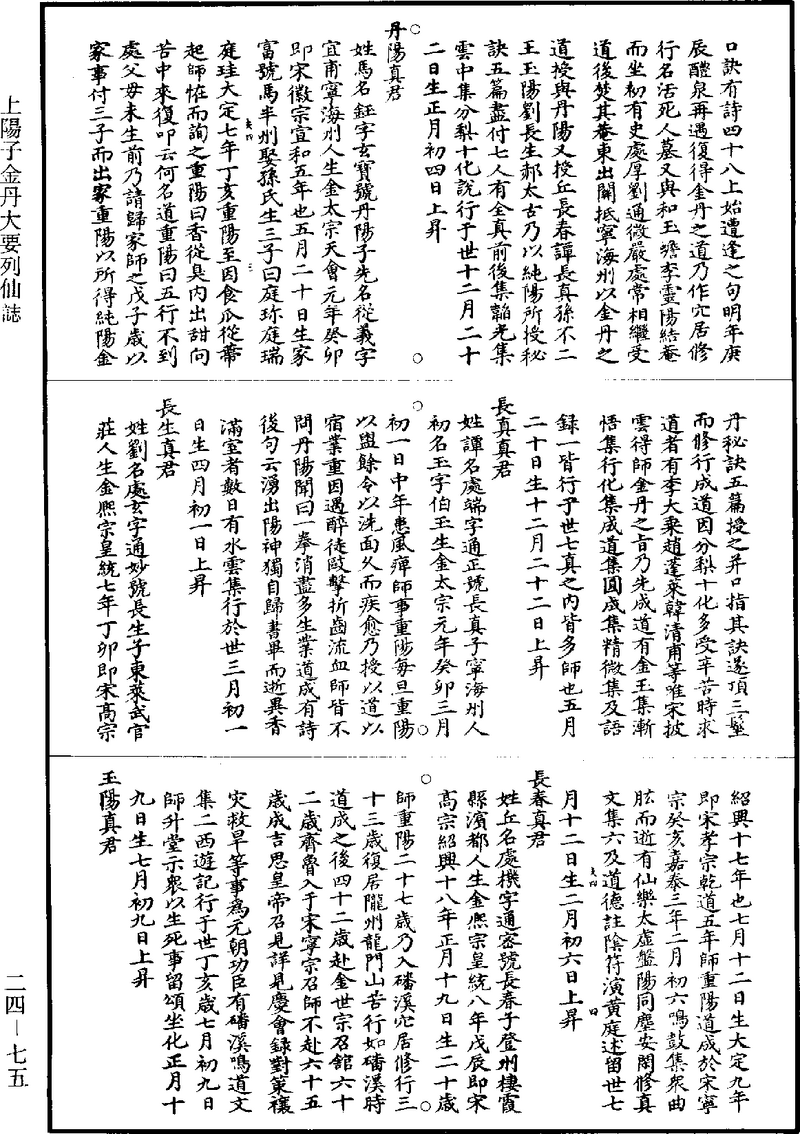 口訣有詩四十八上始遭逢之句明年庚
辰醴泉再遇復得金丹之道乃作穴居修
行名活死人墓又與和玉蟾李靈陽結菴
而坐初有史處厚劉通微嚴處常相繼受
道後焚其菴東出關抵寧海州以金丹之
道授與丹陽又授丘長春譚長真孫不二
王玉陽劉長生郝太古乃以純陽所授秘
訣五篇盡付七人有全真前後集韜光集
雲中集分梨十化說行于世十二月二十
二日生正月初四日上昇
丹陽真君
姓馬名鈺字玄寶號丹陽子先名從義字
宜甫寧海州人生金太宗天會元年癸卯
即宋徽宗宣和五年也五月二十日生家
富號馬半州娶孫氏生三子曰庭珍庭瑞
庭珪大定七年丁亥重陽至因食瓜從蒂
起師恠而詢之重陽曰香從臭內出甜向
苦中來復叩云何名道重陽曰五行不到
處父母未生前乃請歸家師之戊子歲以
家事付三子而出家重陽以所得純陽金
丹秘訣五篇授之并口指其訣遂頂三髻
而修行成道因分梨十化多受辛苦時求
道者有李大乘趙蓬萊韓清甫等唯宋披
雲得師金丹之旨乃先成道有金玉集漸
悟集行化集成道集圓成集精微集及語
録一皆行于世七真之內皆多師也五月
二十日生十二月二十二日上昇
長真真君
姓譚名處端字通正號長真子寧海州人
初名玉字伯玉生金太宗元年癸卯三月
初一日中年患風痹師事重陽每旦重陽
以盥餘令以洗面久而疾愈乃授以道以
宿業重因遇醉徒毆擊折齒流血師皆不
問丹陽聞曰一拳消盡多生業道成有詩
後句云湧出陽神獨自歸書畢而逝異香
滿室者數日有水雲集行於世三月初一
日生四月初一日上昇
長生真君
姓劉名處玄字通妙號長生子東萊武官
莊人生金熙宗皇統七年丁卯即宋高宗
紹興十七年也七月十二日生大定九年
即宋孝宗乾道五年師重陽道成於宋寧
宗癸亥嘉泰三年二月初六鳴鼓集衆曲
肱而逝有仙樂太虛盤陽同塵安閑修真
文集六及道德註陰符演黃庭述留世七
月十二日生二月初六日上昇
長春真君
姓丘名處機字通密號長春子登州棲霞
縣濱都人生金熙宗皇統八年戊辰即宋
高宗紹興十八年正月十九日生二十歲
師重陽二十七歲乃入磻溪穴居修行三
十三歲復居隴州龍門山苦行如磻溪時
道成之後四十二歲赴金世宗召館六十
二歲齊魯入于宋寧宗召師不赴六十五
歲成吉思皇帝召見詳見慶會録對策禳
災救旱等事為元朝功臣有磻溪鳴道文
集二西遊記行于世丁亥歲七月初九日
師升堂示衆以生死事留頌坐化正月十
九日生七月初九日上昇
玉陽真君
上陽子金丹大要列仙誌
二四—七五